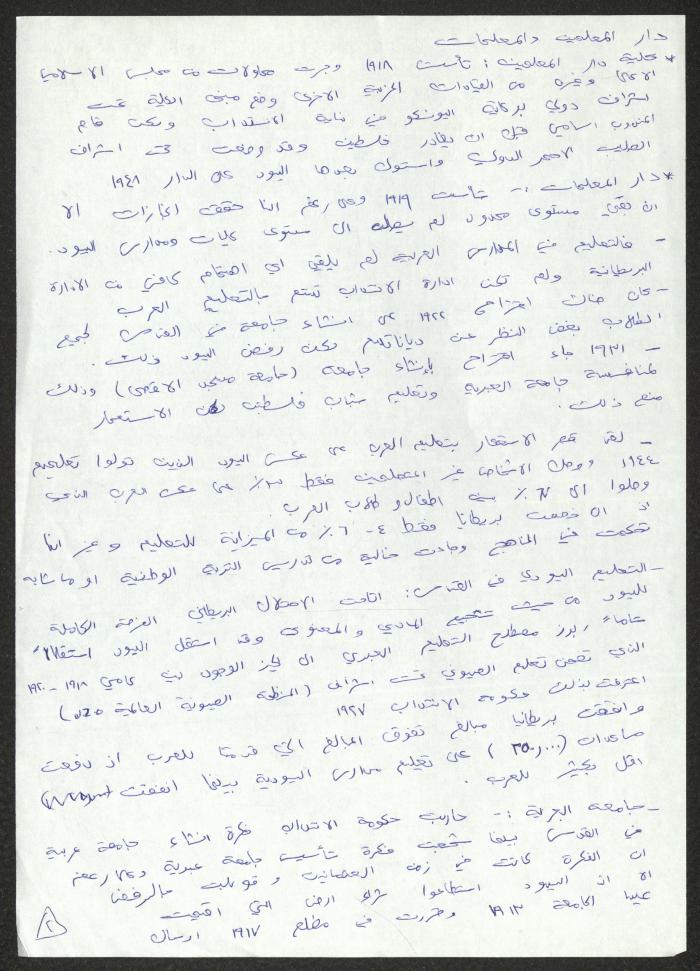 دار المعلمين والمعلمات
* كلية دار المعلمين: تأسست ١٩١٨ وجرت محاولات من مجلس الاسلامي
الاعلى وغيره من القيادات العربية الاخرى وضع مبنى الكلية تحت
اشراف دولي برعاية اليونسكو في نهاية الانتداب ولكن قام
المندوب السامي قبل ان يغادر فلسطين وقد وضعت تحت اشراف
الصليب الاحمر الدولي واستولى بعدها اليهود على الدار ١٩٤٨
* دار المعلمات :- تأسست ١٩١٩ وعلى رغم انها حققت انجازات الا
ان بقي مستوى محدود لم يصل الى مستوى كليات ومدارس اليهود.
- فالتعليم في المدارس العربية لم يلقى أي اهتمام كافي من الادارة
البريطانية ولم تكن ادارة الانتداب تهتم بالتعليم العرب
- كان هناك اقتراحي ١٩٢٢ على انشاء جامعة في القدس لجميع
الطلاب بغض النظر عن دياناتهم لكن رفض اليهود ذلك.
- ١٩٣١ جاء اقتراح بإنشاء جامعة (جامعة مسجد الاقصى) وذلك
لمنافسة جامعة العبرية وتعليم شباب فلسطين لكن الاستعمار
منع ذلك.
- لقد قصر الاستعمار بتعليم العرب على عكس اليهود الذين تولوا تعليمهم
١٩٤٤ ووصل الاشخاص غير المتعلمين فقط ٣٪ على عكس العرب الذي
وصلوا الى ٦٧٪ بين اطفال وطلاب العرب.
اذ ان خصصت بريطانيا فقط ٤-٦٪ من الميزانية للتعليم وغير انها
تحكمت في المناهج وجاءت خالية من تدريس التربية الوطنية او ما شابه
- التعليم اليهودي في القدس: اتاحت الاحتلال البريطاني الفرصة الكاملة
لليهود من حيث تشجيع المادي والمعنوي وقد استقل اليهود استقلالا
تاماً، برز مصطلح التعليم العبري الى حيز الوجود بين عامي ١٩١٨-١٩٢٠
الذي تضمن تعلم الصهيوني تحت اشراف (المنظمة الصهيونية العالمية)
اعترفت بذلك حكومة الانتداب ١٩٢٧
وانفقت بريطانيا مبالغ تفوق المبالغ التي قدمتها للعرب اذ دفعت
مساعدات ( ) على تعليم مدارس اليهودية بينما انفقت
اقل بكثير للعرب.
- جامعة العبرية :- حاربت حكومة الانتداب فكرة انشاء جامعة عربية
في القدس بينما شجعت فكرة تأسيس جامعة عبرية وعلى رغم
ان الفكرة كانت في زمن العثمانيين وقوبلت بالرفض
الا ان اليهود استطاعوا شراء ارض التي اقيمت
عليها الجامعة ١٩١٣ وقررت في مطلع ١٩١٧ ارسال
٢